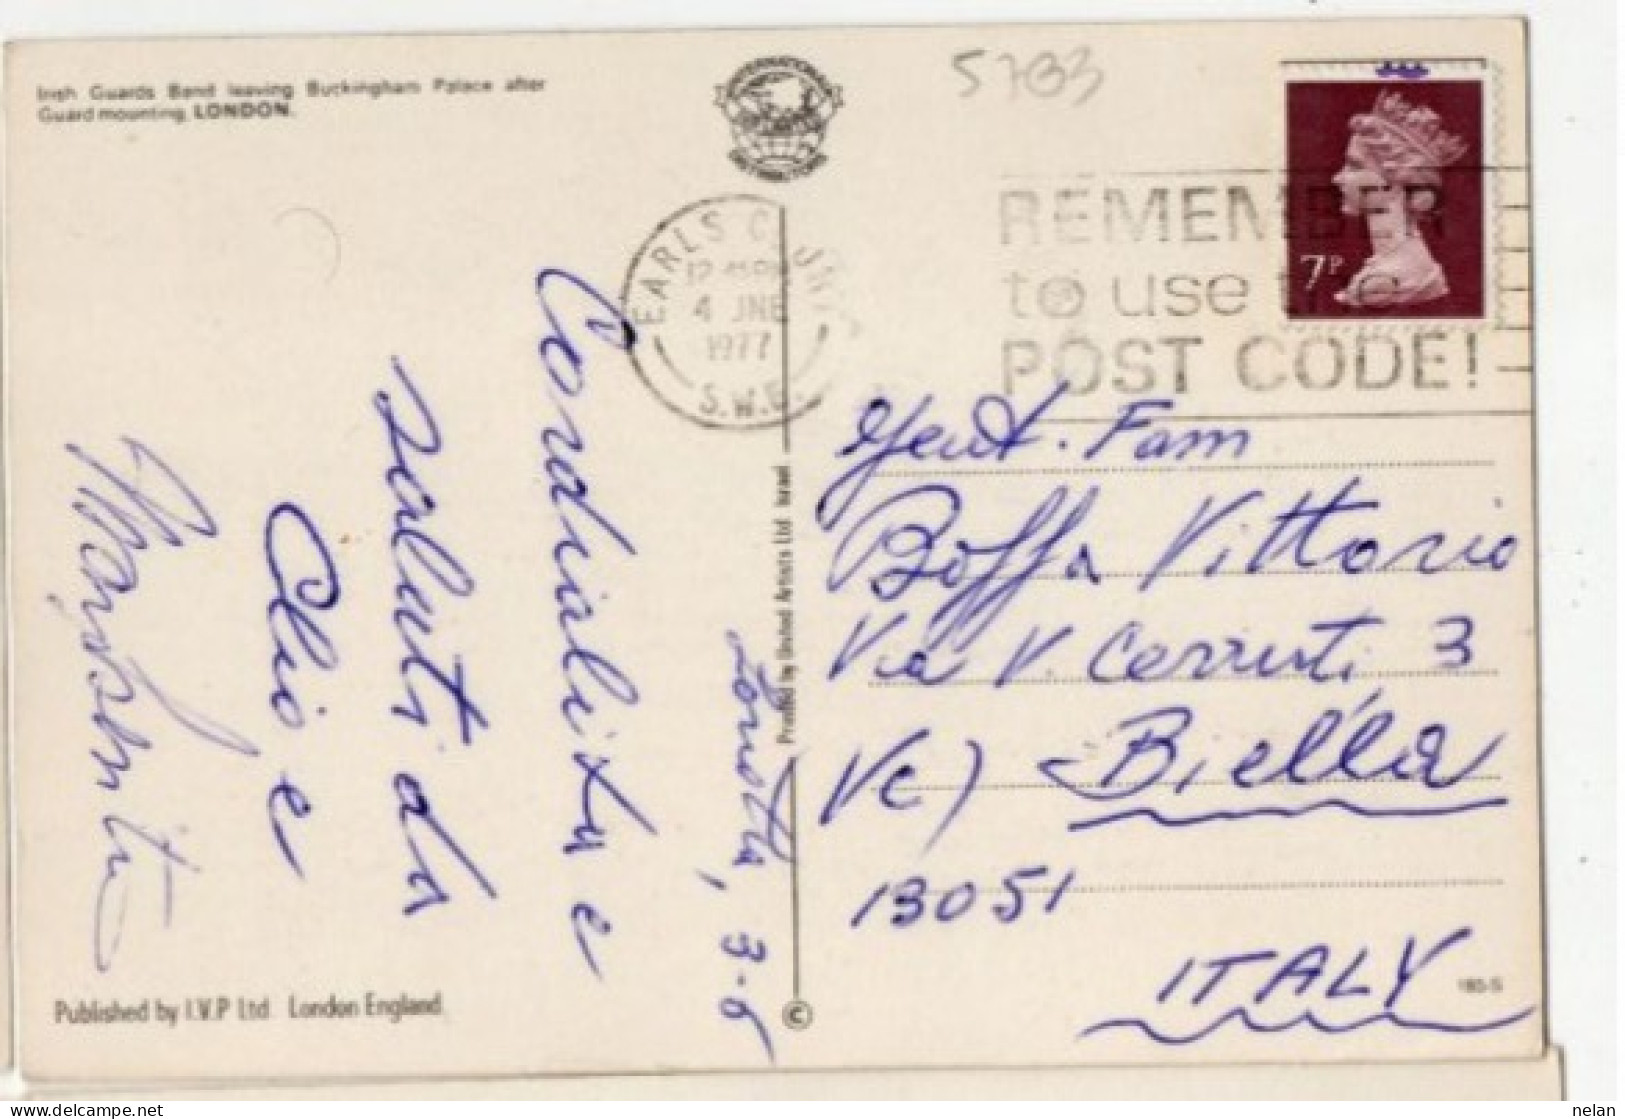 Irish Guards Band leaving Buckingham Palace after
Guard mounting, LONDON.
INTERNATIONAL
DISTRIBUTORS
5783
7P
EARLS C
12 PM
4 JNE
1977
S.W.5.
REMEMBER
to use the
POST CODE!
Londra, 3-6
Cordialità e
saluti da
Clio e
Gent. Fam
Boffa Vittorio
Via V. Cerruti 3
Vc) Biella
13051
ITALY
Printed by United Artists Ltd Israel
Published by I.V.P Ltd London England
©
185-S
nelan